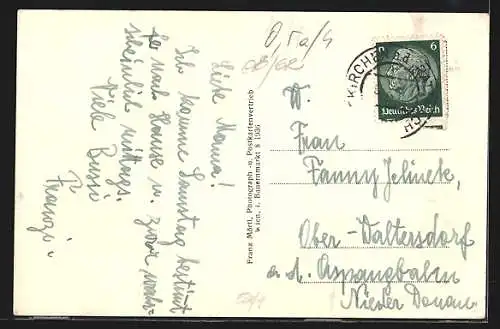 Liebe Mama!
Ich komme Samstag bestimmt
nach Hause u. zwar wahr-
scheinlich mittags.
Viele Bussi
Franzi
Franz Mörtl, Photograph u. Postkartenvertrieb
Wien, i. Bauernmarkt 8 1936
KIRCHB
6
Deutsches Reich
Frau
Fanny Jelinek,
Ober-Waltersdorf
a. d. Aspangbahn
Nieder Donau